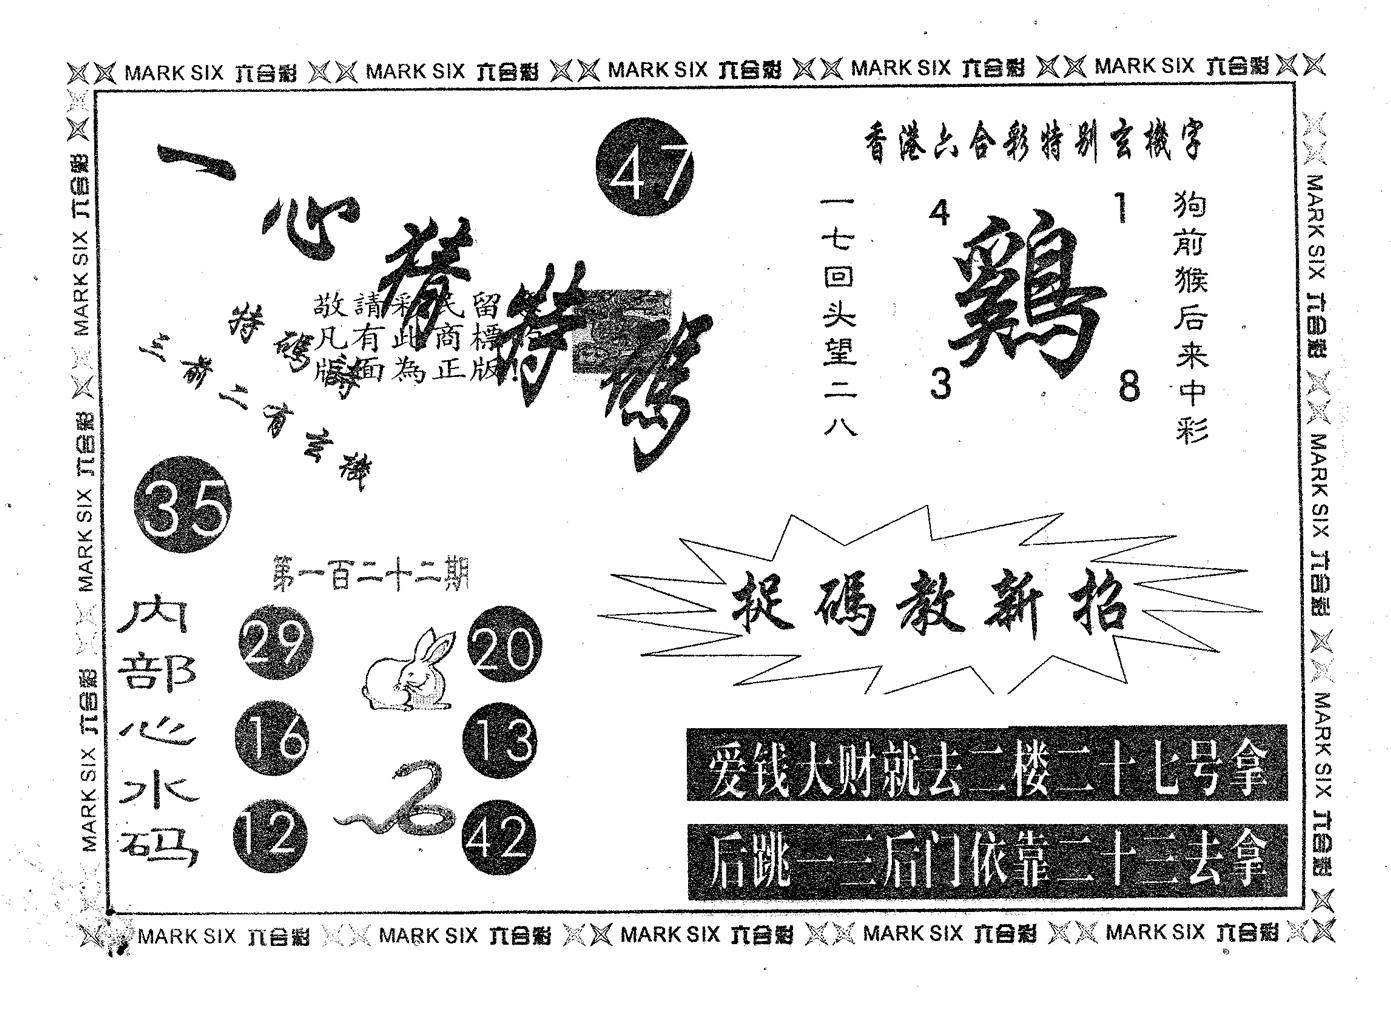 MARK SIX 六合彩 MARK SIX 六合彩 MARK SIX 六合彩 MARK SIX 六合彩 MARK SIX 六合彩
MARK SIX 六合彩 MARK SIX 六合彩 MARK SIX 六合彩
一心猜特碼
47
敬請彩民留
凡有此商標
版面為正版!
特碼詩
三前二有玄機
35
香港六合彩特别玄機字
一七回头望二八
4 1
鷄
3 8
狗前猴后来中彩
第一百二十二期
内部心水码
29 20
16 13
12 42
捉碼教新招
爱钱大财就去二楼二十七号拿
后跳一三后门依靠二十三去拿
MARK SIX 六合彩 MARK SIX 六合彩 MARK SIX 六合彩
MARK SIX 六合彩 MARK SIX 六合彩 MARK SIX 六合彩 MARK SIX 六合彩 MARK SIX 六合彩